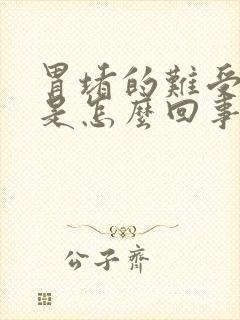 胃堵的難受
是怎麼回事
公子齊